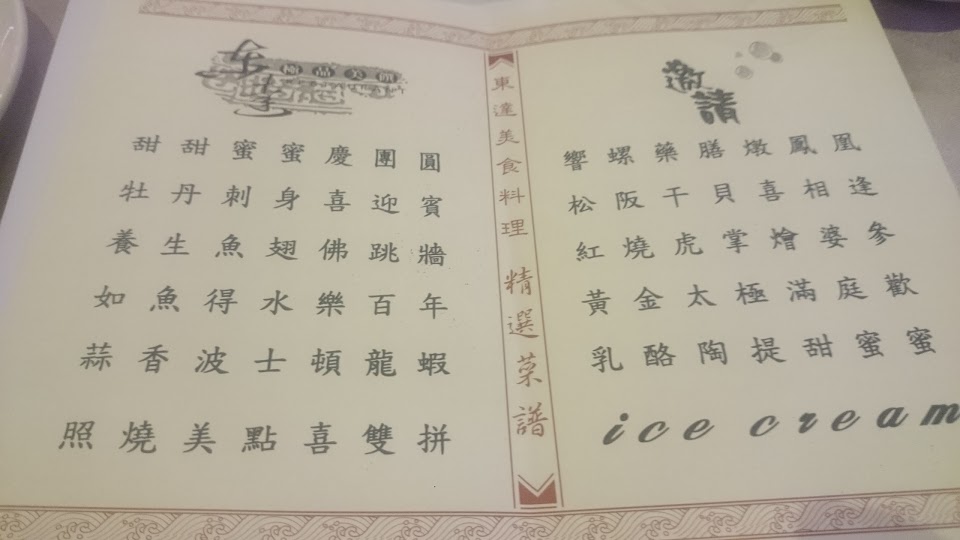 極品美饌
甜甜蜜蜜慶團圓
牡丹刺身喜迎賓
養生魚翅佛跳牆
如魚得水樂百年
蒜香波士頓龍蝦
照燒美點喜雙拼
東達美食料理 精選菜譜
邀請
響螺藥膳燉鳳凰
松阪干貝喜相逢
紅燒虎掌燴婆參
黃金太極滿庭歡
乳酪陶提甜蜜蜜
ice cream